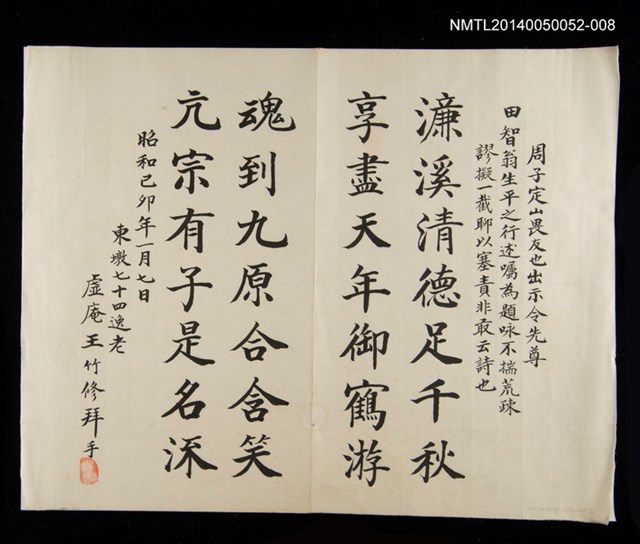 NMTL20140050052-008
周子定山畏友也出示令先尊
田智翁生平之行述囑為題咏不揣荒疎
謬擬一截聊以塞責非敢云詩也
濂溪清德足千秋
享盡天年御鶴游
魂到九原合含笑
亢宗有子是名流
昭和己卯年一月七日
東墩七十四逸老
虛庵王竹修拜手